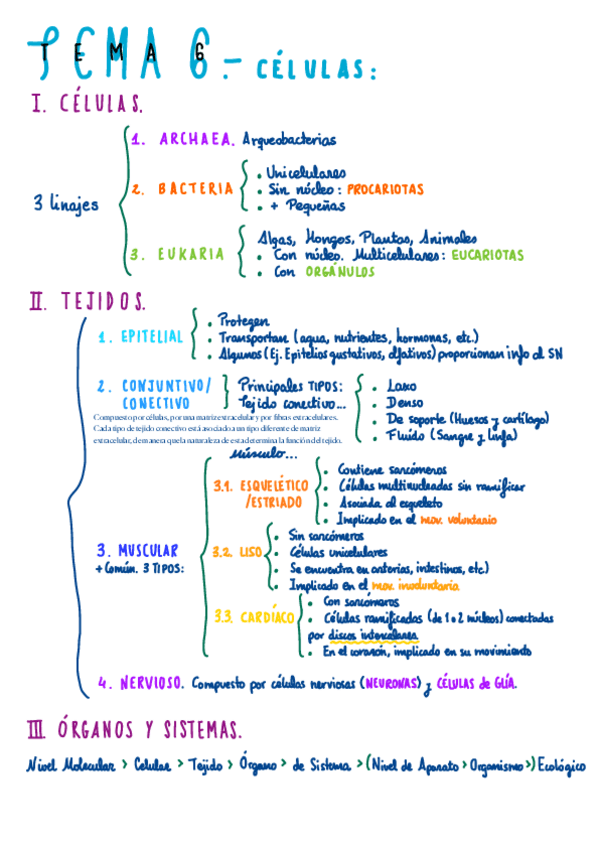 TEMA 6.- CÉLULAS:
I. CÉLULAS.
3 linajes
1. ARCHAEA. Arqueobacterias
2. BACTERIA
• Unicelulares
• Sin núcleo: PROCARIOTAS
• + Pequeñas
3. EUKARIA
Algas, Hongos, Plantas, Animales
• Con núcleo. Multicelulares: EUCARIOTAS
• Con ORGÁNULOS
II. TEJIDOS.
1. EPITELIAL
• Protegen
• Transportan (agua, nutrientes, hormonas, etc.)
• Algunos (Ej. Epitelios gustativos, olfativos) proporcionan info al SN
2. CONJUNTIVO/
CONECTIVO
Principales TIPOS:
Tejido conectivo...
• Laxo
• Denso
• De soporte (Huesos y cartílago)
• Fluido (Sangre y linfa)
Compuesto por células, por una matriz extracelular y por fibras extracelulares.
Cada tipo de tejido conectivo está asociado a un tipo diferente de matriz
extracelular, de manera que la naturaleza de esta determina la función del tejido.
3. MUSCULAR
+ Común. 3 TIPOS:
Músculo...
3.1. ESQUELÉTICO
/ESTRIADO
• Contiene sarcómeros
• Células multinucleadas sin ramificar
• Asociada al esqueleto
• Implicado en el mov. voluntario
3.2. LISO
• Sin sarcómeros
• Células unicelulares
• Se encuentra en arterias, intestinos, etc)
• Implicado en el mov. involuntario.
3.3. CARDÍACO
• Con sarcómeros
• Células ramificadas (de 1 o 2 núcleos) conectadas
por discos intercalares
• En el corazón, implicado en su movimiento
4. NERVIOSO. Compuesto por células nerviosas (NEURONAS) y CÉLULAS de GLÍA.
III. ÓRGANOS Y SISTEMAS.
Nivel Molecular > Celular > Tejido > Órgano > de Sistema > (Nivel de Aparato > Organismo >) Ecológico